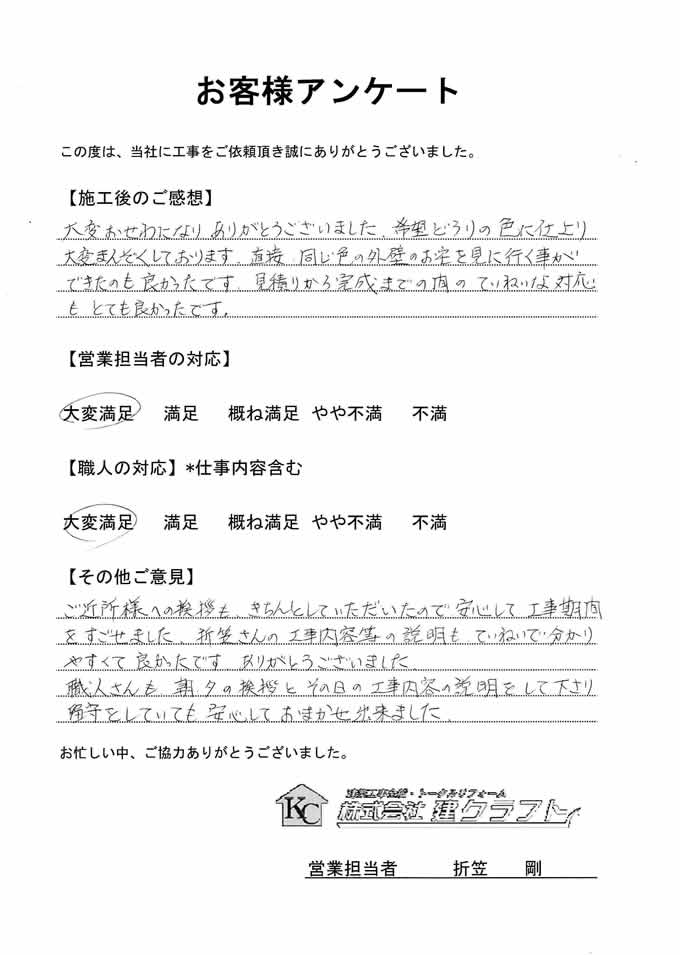 お客様アンケート
この度は、当社に工事をご依頼頂き誠にありがとうございました。
【施工後のご感想】
大変おせわになりありがとうございました。希望どうりの色に仕上り
大変まんぞくしております。直接 同じ色の外壁のお宅を見に行く事が
できたのも良かったです。見積りから完成までの間のていねいな対応
もとても良かったです。
【営業担当者の対応】
大変満足 満足 概ね満足 やや不満 不満
【職人の対応】*仕事内容含む
大変満足 満足 概ね満足 やや不満 不満
【その他ご意見】
ご近所様への挨拶も、きちんとしていただいたので安心して工事期間
をすごせました。折笠さんの工事内容等の説明もていねいで分かり
やすくて良かったです ありがとうございました
職人さんも朝夕の挨拶とその日の工事内容の説明をして下さり
留守をしていても安心しておまかせ出来ました。
お忙しい中、ご協力ありがとうございました。
建築工事全般・トータルリフォーム
KC 株式会社 建クラフト
営業担当者 折笠 剛